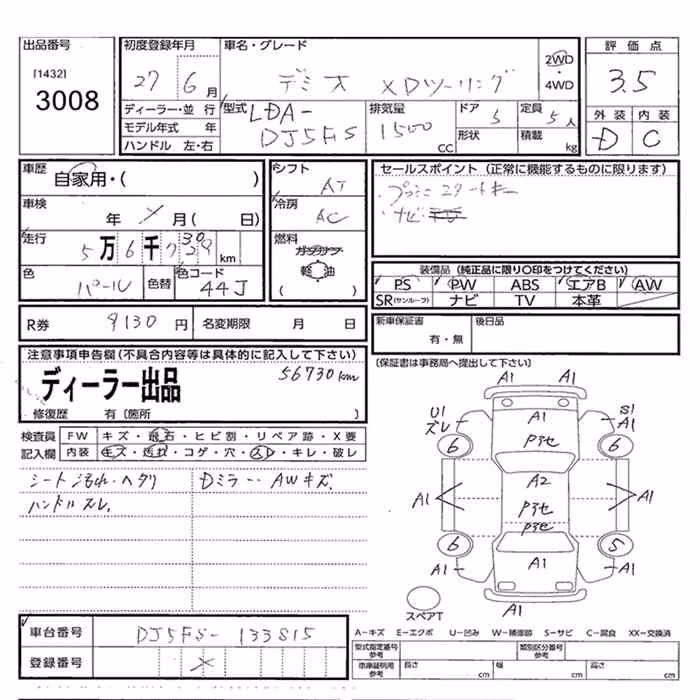 出品番号
[1432]
3008
初度登録年月
27 6月
車名・グレード
デミオ XDツーリング
2WD
・
4WD
評価点
3.5
外装 内装
D C
ディーラー・並行
モデル年式 年
ハンドル 左・右
型式
LDA-
DJ5FS
排気量
1500
CC
ドア 5
形状
定員 5人
積載 kg
車歴
自家用・( )
車検
年 × 月( 日)
走行
5万6千730 km
色 パール
色替
色コード
44J
シフト
AT
冷房
AC
燃料
軽油
( )
セールスポイント (正常に機能するものに限ります)
・プッシュスタートキー
・ナビ
装備品 (純正品に限り〇印をつけてください)
PS PW ABS エアB AW
SR(サンルーフ) ナビ TV 本革
R券 9130 円 名変期限 月 日
新車保証書
有・無
後日品
(保証書は事務局へ提出して下さい)
注意事項申告欄(不具合内容等は具体的に記入して下さい)
ディーラー出品
56730km
修復歴 有〔箇所 〕
検査員
記入欄
FW キズ・飛石・ヒビ割・リペア跡・X要
内装 キズ・汚れ・コゲ・穴・スレ・キレ・破レ
シート汚れ・ヘタリ
Dミラー・AWキズ.
ハンドルスレ.
A1
A1
U1
ズレ
S1
A1
6
A1
Pアセ
6
A1
A2
Pアセ
Pアセ
A1
6
A1
5
A1
A1
スペアT
車台番号 DJ5FS-133515
登録番号 ×
A-キズ E-エクボ U-凹み W-補修跡 S-サビ C-腐食 XX-交換済
型式指定番号
参考
類別区分番号
参考
車庫証明用
参考
長さ cm
幅 cm
高さ cm